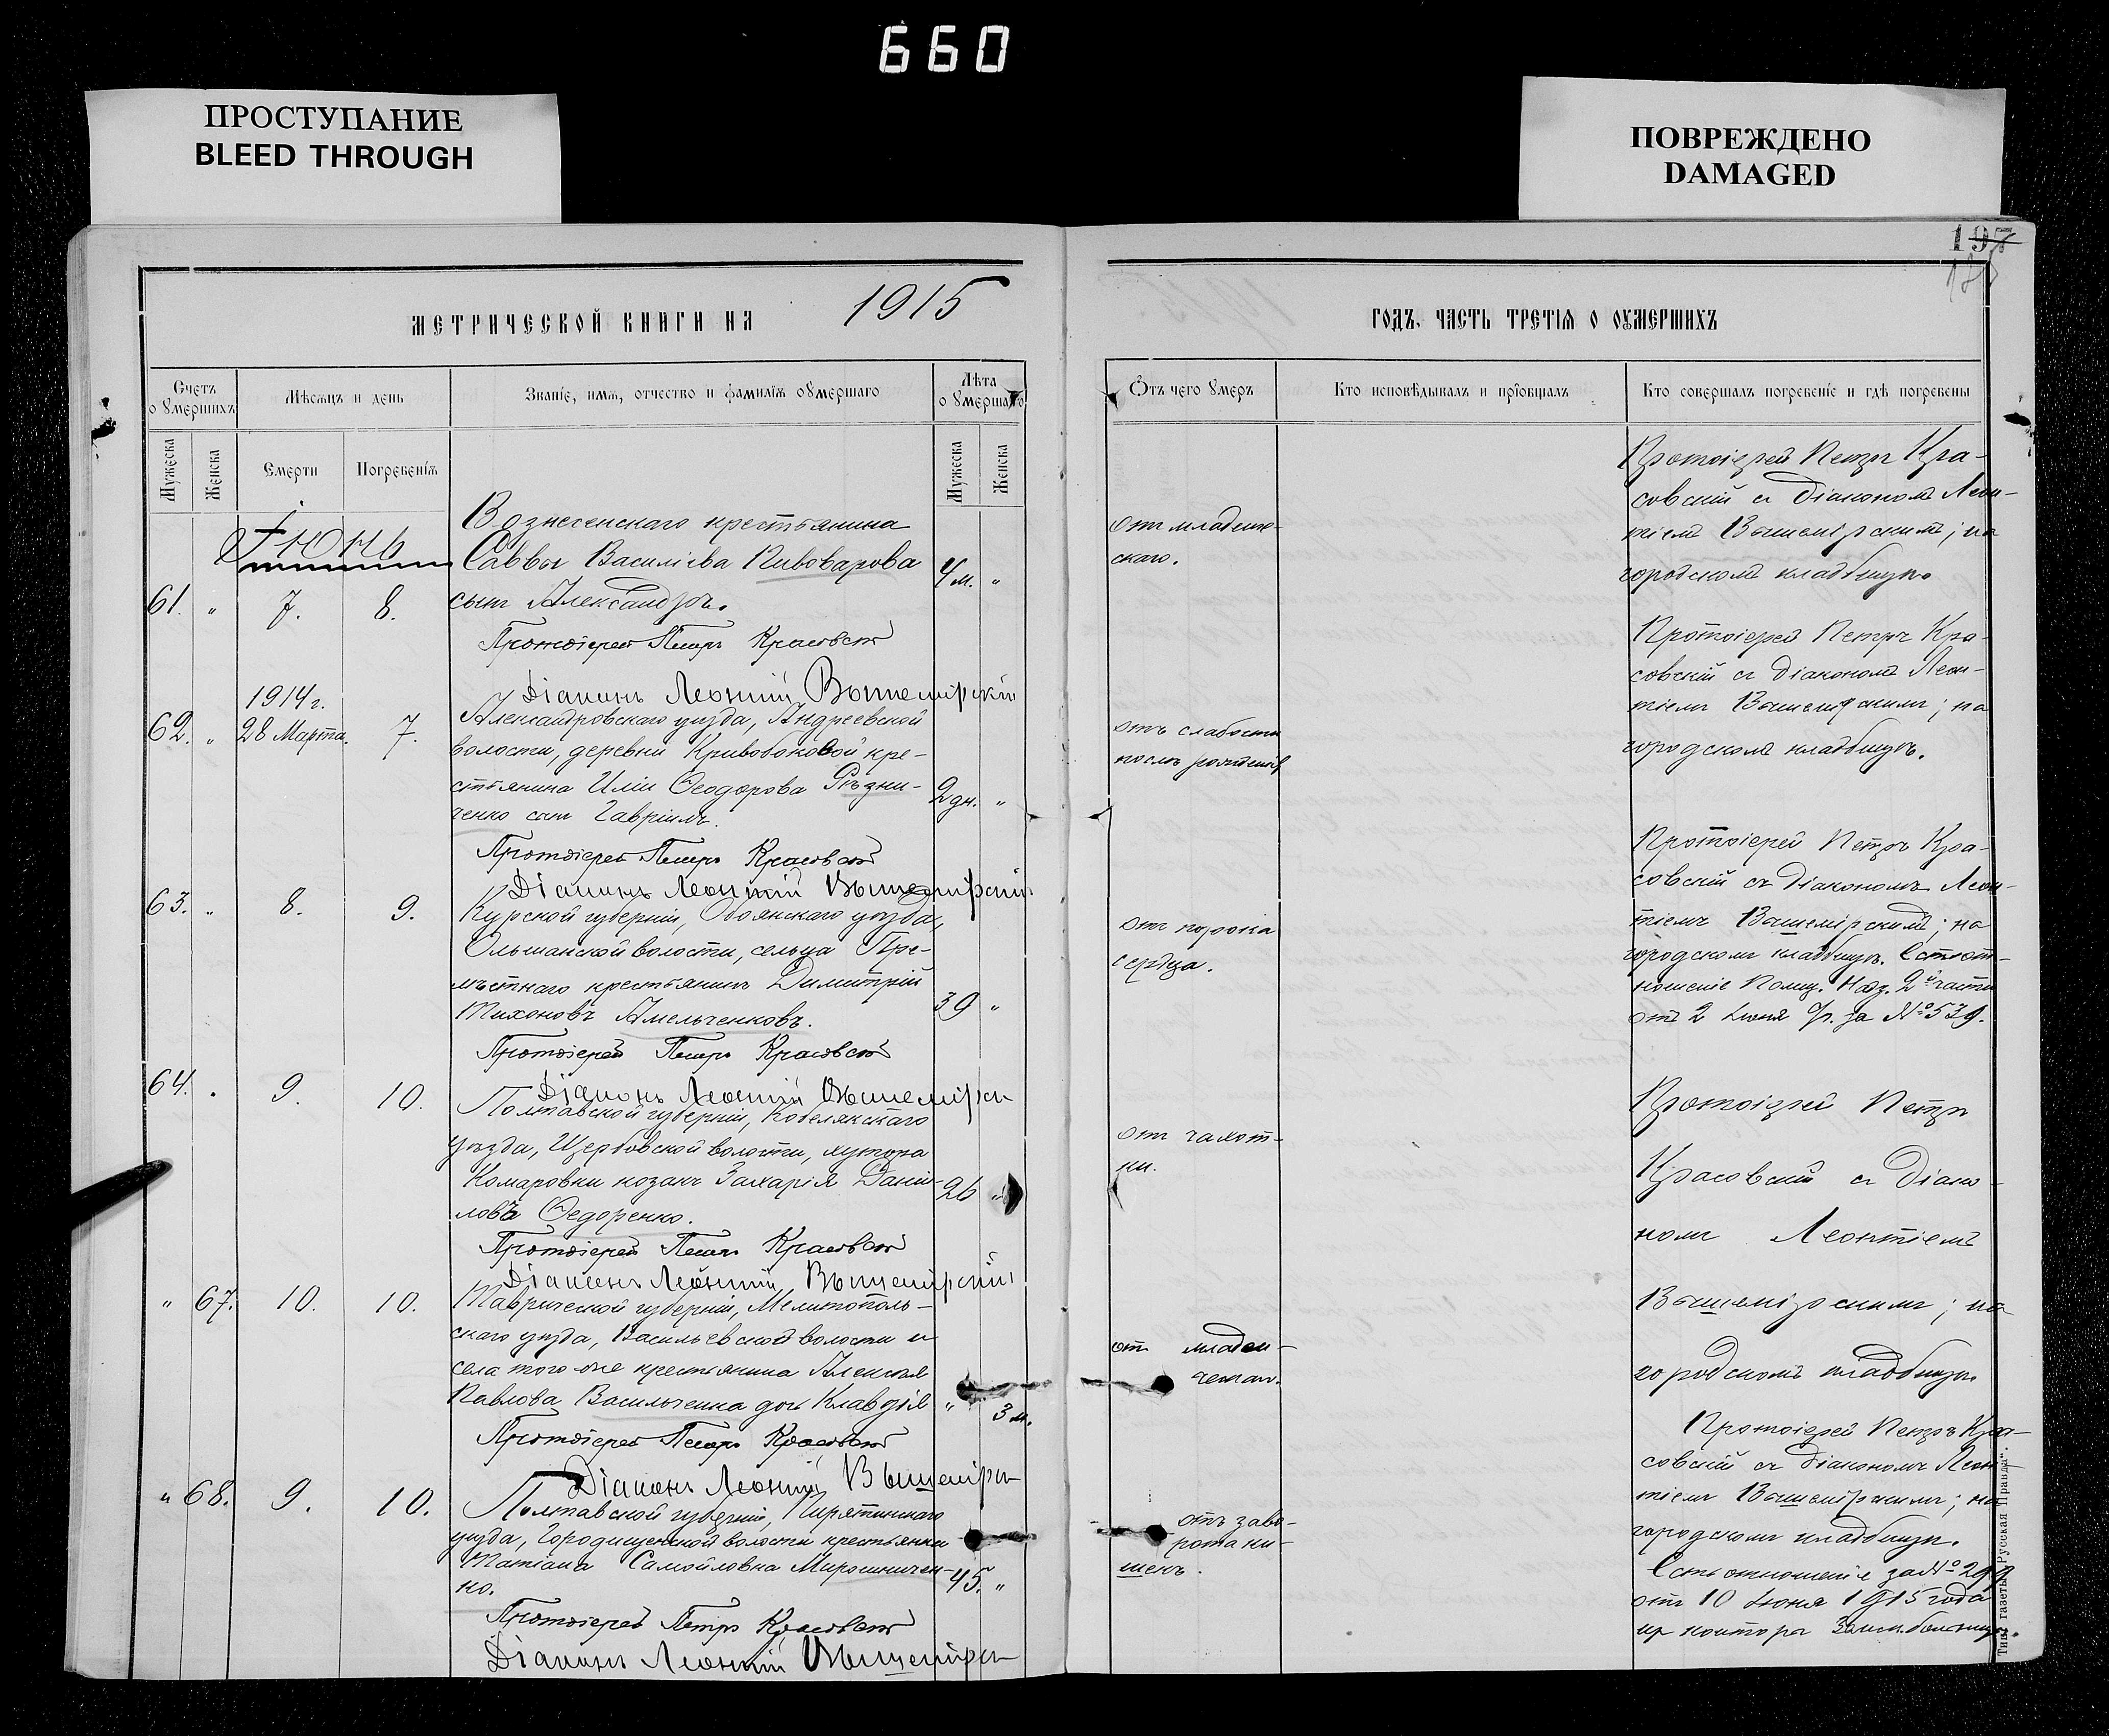 660
ПРОСТУПАНИЕ
BLEED THROUGH
ПОВРЕЖДЕНО
DAMAGED
197
МЕТРИЧЕСКОЙ КНИГИ НА 1915
ГОДЪ, ЧАСТЬ ТРЕТІЯ О ОУМЕРШИХЪ
Счетъ
о умершихъ
Мѣсяцъ и день
Званіе, имя, отчество и фамилія оумершаго
Лѣта
о умершаго
Мужеска
Женска
Смерти
Погребенія
Мужеска
Женска
Отъ чего умеръ
Кто исповѣдывалъ и пріобщалъ
Кто совершалъ погребеніе и гдѣ погребены
Іюнь
61. " 7. 8.
Вознесенскаго крестьянина
Саввы Василіева Пивоварова
сынъ Александръ.
4 м. "
Протоіерей Петръ Красовскій
Діаконъ Леонтій Вышемірскій
отъ младенче-
скаго.
Протоіерей Петръ Кра-
совскій съ діакономъ Леон-
тіемъ Вышемірскимъ; на
городскомъ кладбищѣ.
1914 г.
62. " 28 Марта. 7.
Александровскаго уѣзда, Андреевской
волости, деревни Кривобоковой кре-
стьянина Иліи Ѳеодорова Рѣзни-
ченко сынъ Гавріилъ.
2 дн. "
Протоіерей Петръ Красовскій
Діаконъ Леонтій Вышемірскій
отъ слабости
послѣ рожденія
Протоіерей Петръ Кра-
совскій съ діакономъ Леон-
тіемъ Вышемірскимъ; на
городскомъ кладбищѣ.
63. " 8. 9.
Курской губерніи, Обоянскаго уѣзда,
Ольшанской волости, сельца Пре-
лѣстнаго крестьянинъ Димитрій
Тихоновъ Амельченковъ.
39 "
Протоіерей Петръ Красовскій
Діаконъ Леонтій Вышемірскій
отъ порока
сердца.
Протоіерей Петръ Кра-
совскій съ діакономъ Леон-
тіемъ Вышемірскимъ; на
городскомъ кладбищѣ. Есть от-
ношеніе Полиц. Над. 2й части
отъ 2 Іюня с/г. за № 539.
64. " 9. 10.
Полтавской губерніи, Кобелякскаго
уѣзда, Щербовской волости, хутора
Комаровки козакъ Захарія Даніи-
ловъ Ѳедоренко.
26 "
Протоіерей Петръ Красовскій
Діаконъ Леонтій Вышемірскій
отъ чахот-
ки.
Протоіерей Петръ
Красовскій съ діако-
номъ Леонтіемъ
Вышемірскимъ; на
городскомъ кладбищѣ.
" 67. 10. 10.
Таврической губерніи, Мелитополь-
скаго уѣзда, Васильевской волости и
села того-же крестьянина Алексѣя
Павлова Васильченка дочь Клавдія
" 3 м.
Протоіерей Петръ Красовскій
Діаконъ Леонтій Вышемірск
отъ младен-
ческаго.
Протоіерей Петръ Кра-
совскій съ діакономъ Леон-
тіемъ Вышемірскимъ; на
городскомъ кладбищѣ.
Есть отношеніе за №
отъ 10 Іюня 1915 года
изъ конторы больницы.
" 68. 9. 10.
Полтавской губерніи, Пирятинскаго
уѣзда, Городищенской волости крестьянка
Татіана Самойловна Мирошничен-
ко.
45. "
Протоіерей Петръ Красовскій
Діаконъ Леонтій Вышемірск
отъ заво-
рота ки-
шекъ.
Тип. газеты „Русская Правда“.